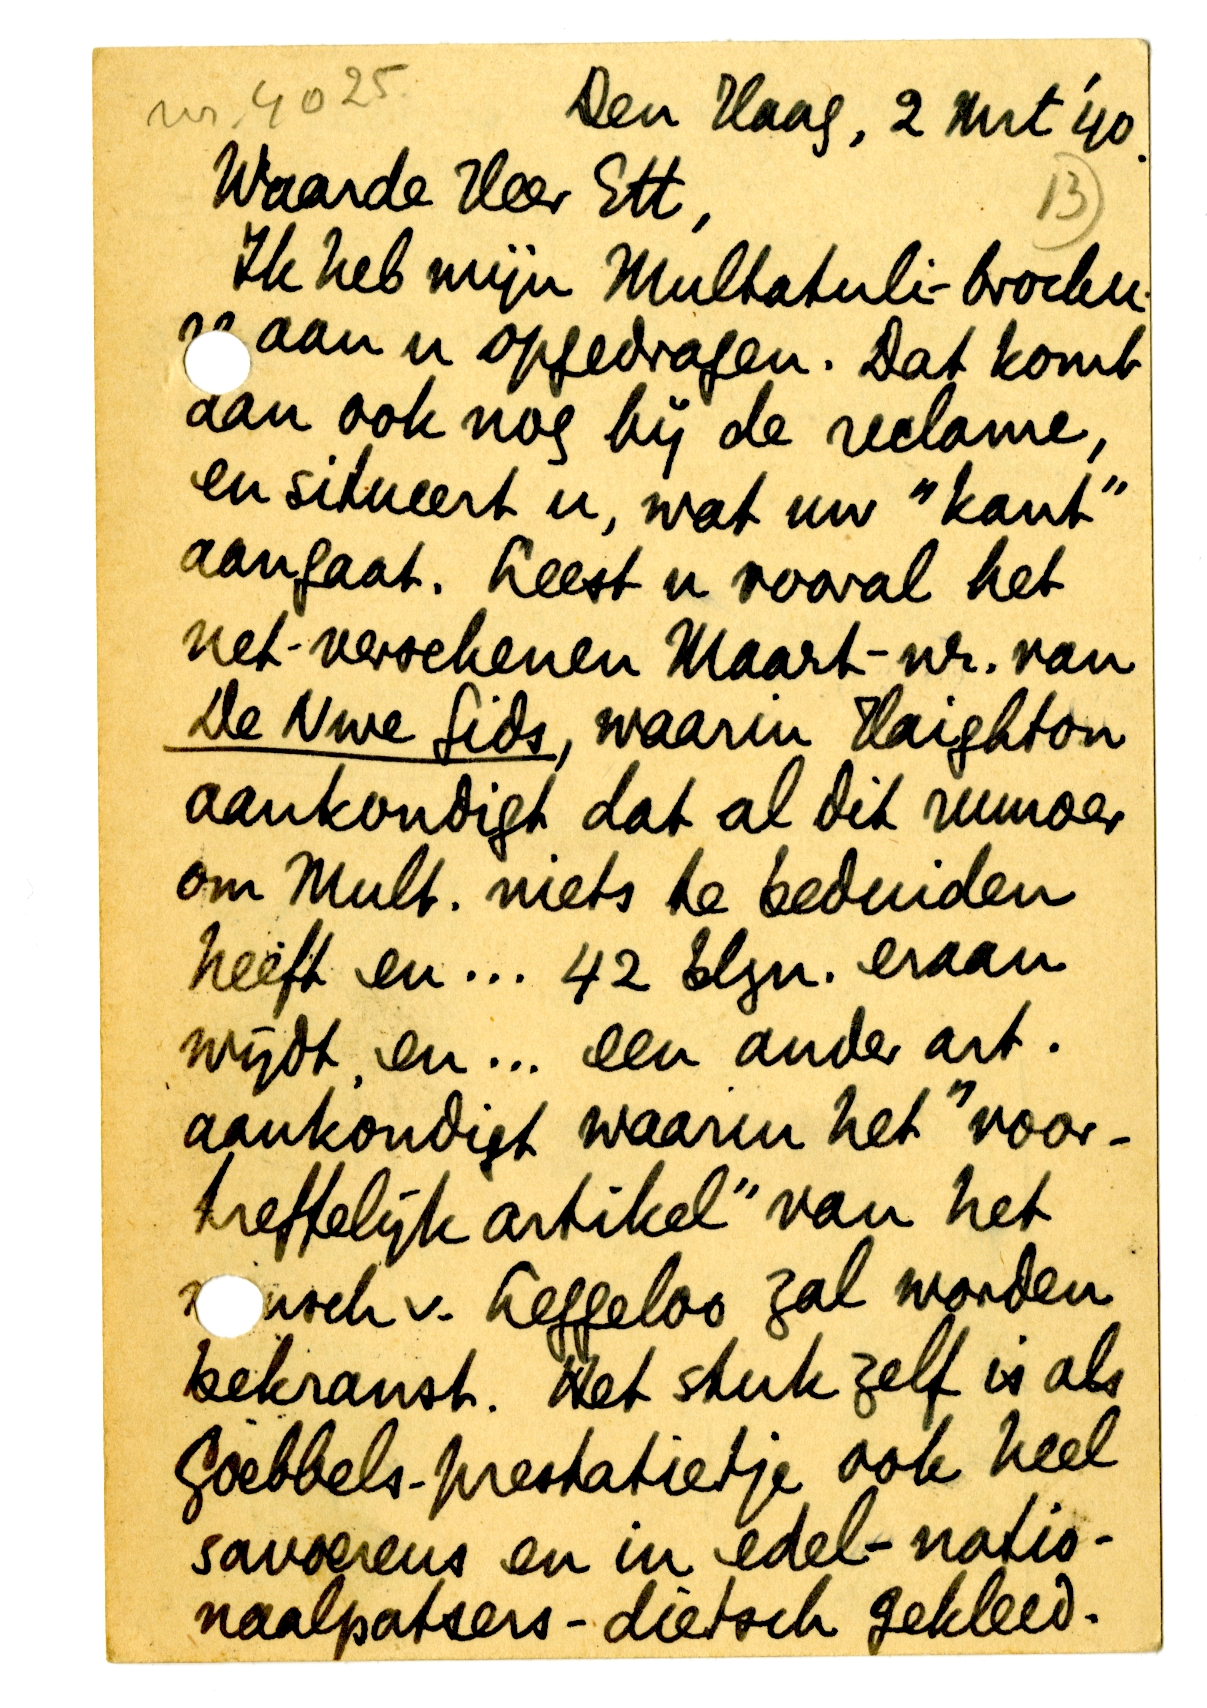 nr. 40 25.
Den Haag, 2 Mrt '40.
B)
Waarde Heer Ett,
Ik heb mijn Multatuli-brochu-
aan u opgedragen. Dat komt
dan ook nog bij de reclame,
en situeert u, wat uw "kant"
aangaat. Leest u vooral het
net-verschenen Maart-nr. van
De Nwe Gids, waarin Haighton
aankondigt dat al dit rumoer
om Mult. niets te beduiden
heeft en... 42 blzn. eraan
wijdt, en... een ander art.
aankondigt waarin het "voor-
treffelijk artikel" van het
mensch v. Leggeloo zal worden
bekranst. Het stuk zelf is als
Goebbels-prestatietje ook heel
savoereus en in edel-natio-
naalpatsers-dietsch gekleed.